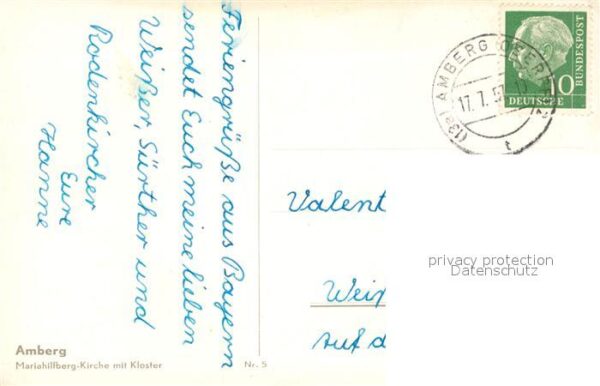 Feriengrüße aus Bayern
sendet Euch meine lieben
Weißer, Sürther und
Rodenkircher
Eure
Hanne
Amberg
Mariahilfberg-Kirche mit Kloster
Nr. 5
(13a) AMBERG
17. 7. 5
t
10
DEUTSCHE
BUNDESPOST
Valent
privacy protection
Datenschutz
Wei
auf d